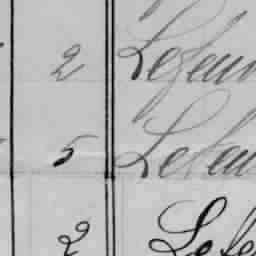 2 Lefeu
5 Lefeu
2 Lefe